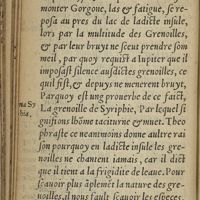 monter Gorgone, las & fatigue, se re-
posa au pres du lac de ladicte insule,
lors par la multitude des Grenoilles,
& par leur bruyt ne sceut prendre som
meil, par quoy requist a Iupiter que il
imposast silence ausdictes grenoilles, ce
quil fist, & depuys ne menerent bruyt,
Parquoy est ung proverbe de ce faict,
La grenoille de Syriphie, Par lequel si
gnifions lhõme taciturne & muet. Theo
phraste ce neantmoins donne aultre rai
son pourquoy en ladicte insule les gre-
noilles ne chantent iamais, car il dict
que il tient a la frigidite de leaue. Pour
sçavoir plus aplemẽt la nature des gre-
noilles, il nous fault sçavoir les especes
na Sy
phia.